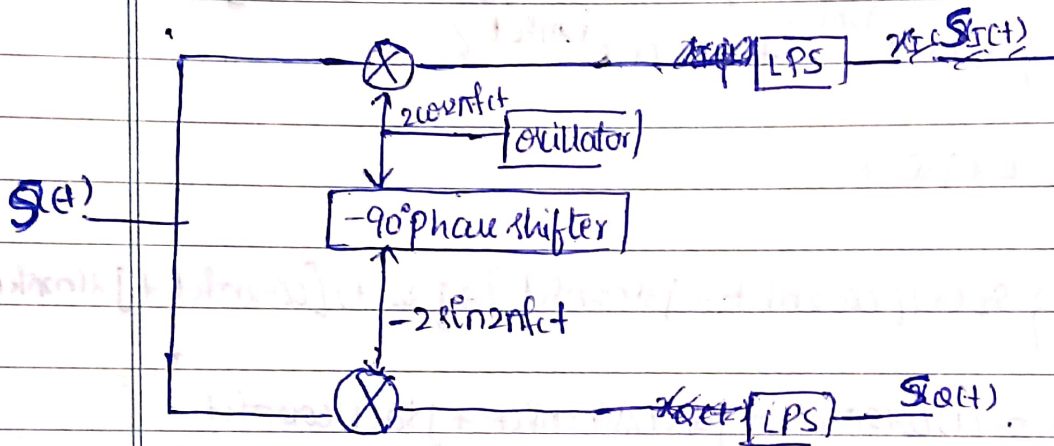 LPS
S_I(t)
2cos2πfct
oscillator
S(t)
-90° phase shifter
-2 sin2πfct
LPS
S_Q(t)